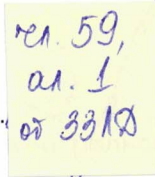 чл. 59,
ал. 1
от ЗЗЛД